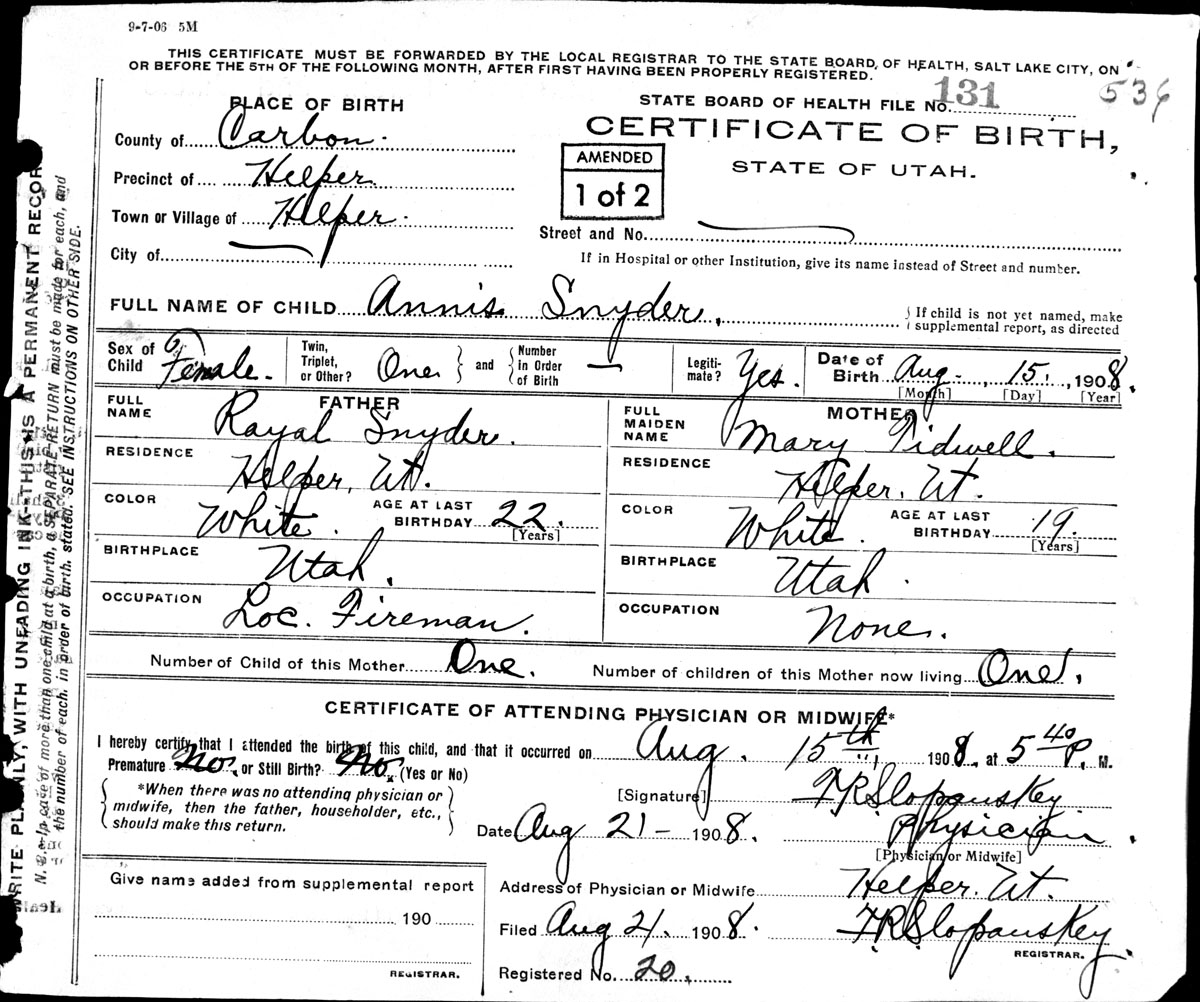 9-7-06 5M
THIS CERTIFICATE MUST BE FORWARDED BY THE LOCAL REGISTRAR TO THE STATE BOARD, OF HEALTH, SALT LAKE CITY, ON
OR BEFORE THE 5TH OF THE FOLLOWING MONTH, AFTER FIRST HAVING BEEN PROPERLY REGISTERED.
PLACE OF BIRTH
STATE BOARD OF HEALTH FILE NO. 131 536
County of Carbon.
CERTIFICATE OF BIRTH,
AMENDED
STATE OF UTAH.
Precinct of Helper
1 of 2
Town or Village of Helper.
Street and No.
City of
If in Hospital or other Institution, give its name instead of Street and number.
FULL NAME OF CHILD Annis Snyder. { If child is not yet named, make
supplemental report, as directed
Sex of Child Female. Twin, Triplet, or Other? One } and { Number in Order of Birth — Legiti-mate? Yes. Date of Birth Aug. 15, 1908.
[Month] [Day] [Year]
FATHER
FULL NAME Royal Snyder.
MOTHER
FULL MAIDEN NAME Mary Tidwell.
RESIDENCE Helper, Ut.
RESIDENCE Helper. Ut.
COLOR White. AGE AT LAST BIRTHDAY 22. [Years]
COLOR White. AGE AT LAST BIRTHDAY 19. [Years]
BIRTHPLACE Utah.
BIRTHPLACE Utah.
OCCUPATION Loc. Fireman.
OCCUPATION None.
Number of Child of this Mother One. Number of children of this Mother now living One.
CERTIFICATE OF ATTENDING PHYSICIAN OR MIDWIFE*
I hereby certify that I attended the birth of this child, and that it occurred on Aug. 15th 1908. at 5 40 P. M.
Premature No. or Still Birth? No. (Yes or No)
{ *When there was no attending physician or
midwife, then the father, householder, etc.,
should make this return. }
[Signature] F R Slopansky
Date Aug 21 - 1908. Physician.
[Physician or Midwife]
Give name added from supplemental report
190
REGISTRAR.
Address of Physician or Midwife Helper. Ut.
Filed Aug 21. 1908. F R Slopansky.
REGISTRAR.
Registered No. 20.
WRITE PLAINLY, WITH UNFADING INK—THIS IS A PERMANENT RECORD
N. B.—In case of more than one child at a birth, a SEPARATE RETURN must be made for each, and
the number of each, in order of birth, stated. SEE INSTRUCTIONS ON OTHER SIDE.